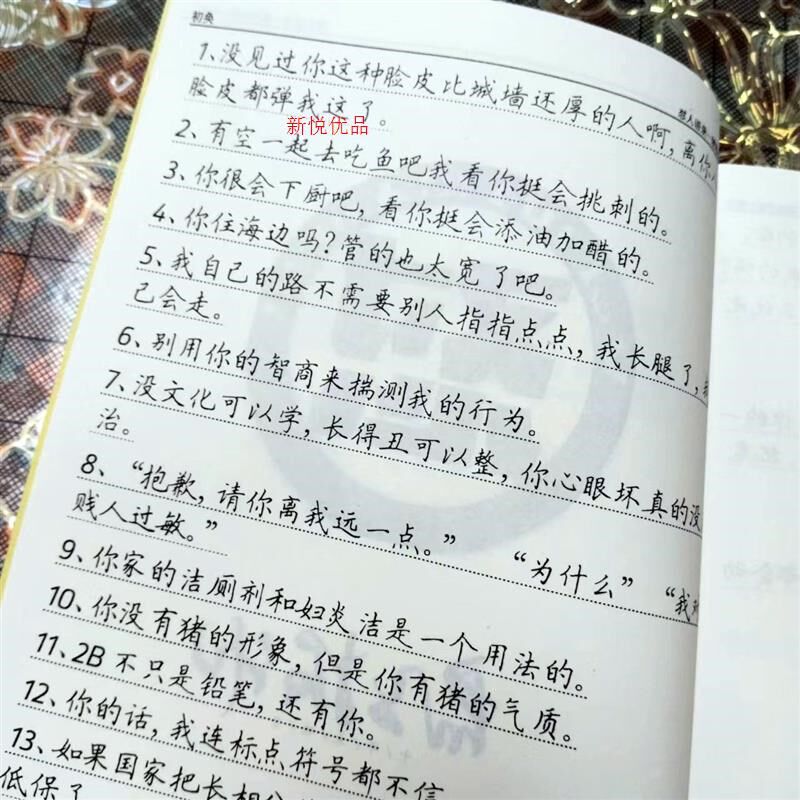 初奂
怼人语录
1、没见过你这种脸皮比城墙还厚的人啊，离你
脸皮都弹我这了。
新悦优品
2、有空一起去吃鱼吧我看你挺会挑刺的。
3、你很会下厨吧，看你挺会添油加醋的。
4、你住海边吗？管的也太宽了吧。
5、我自己的路不需要别人指指点点，我长腿了，我
己会走。
6、别用你的智商来揣测我的行为。
7、没文化可以学，长得丑可以整，你心眼坏真的没
治。
8、“抱歉，请你离我远一点。” “为什么” “我对
贱人过敏。”
9、你家的洁厕利和妇炎洁是一个用法的。
10、你没有猪的形象，但是你有猪的气质。
11、2B不只是铅笔，还有你。
12、你的话，我连标点符号都不信
13、如果国家把长相
低保了